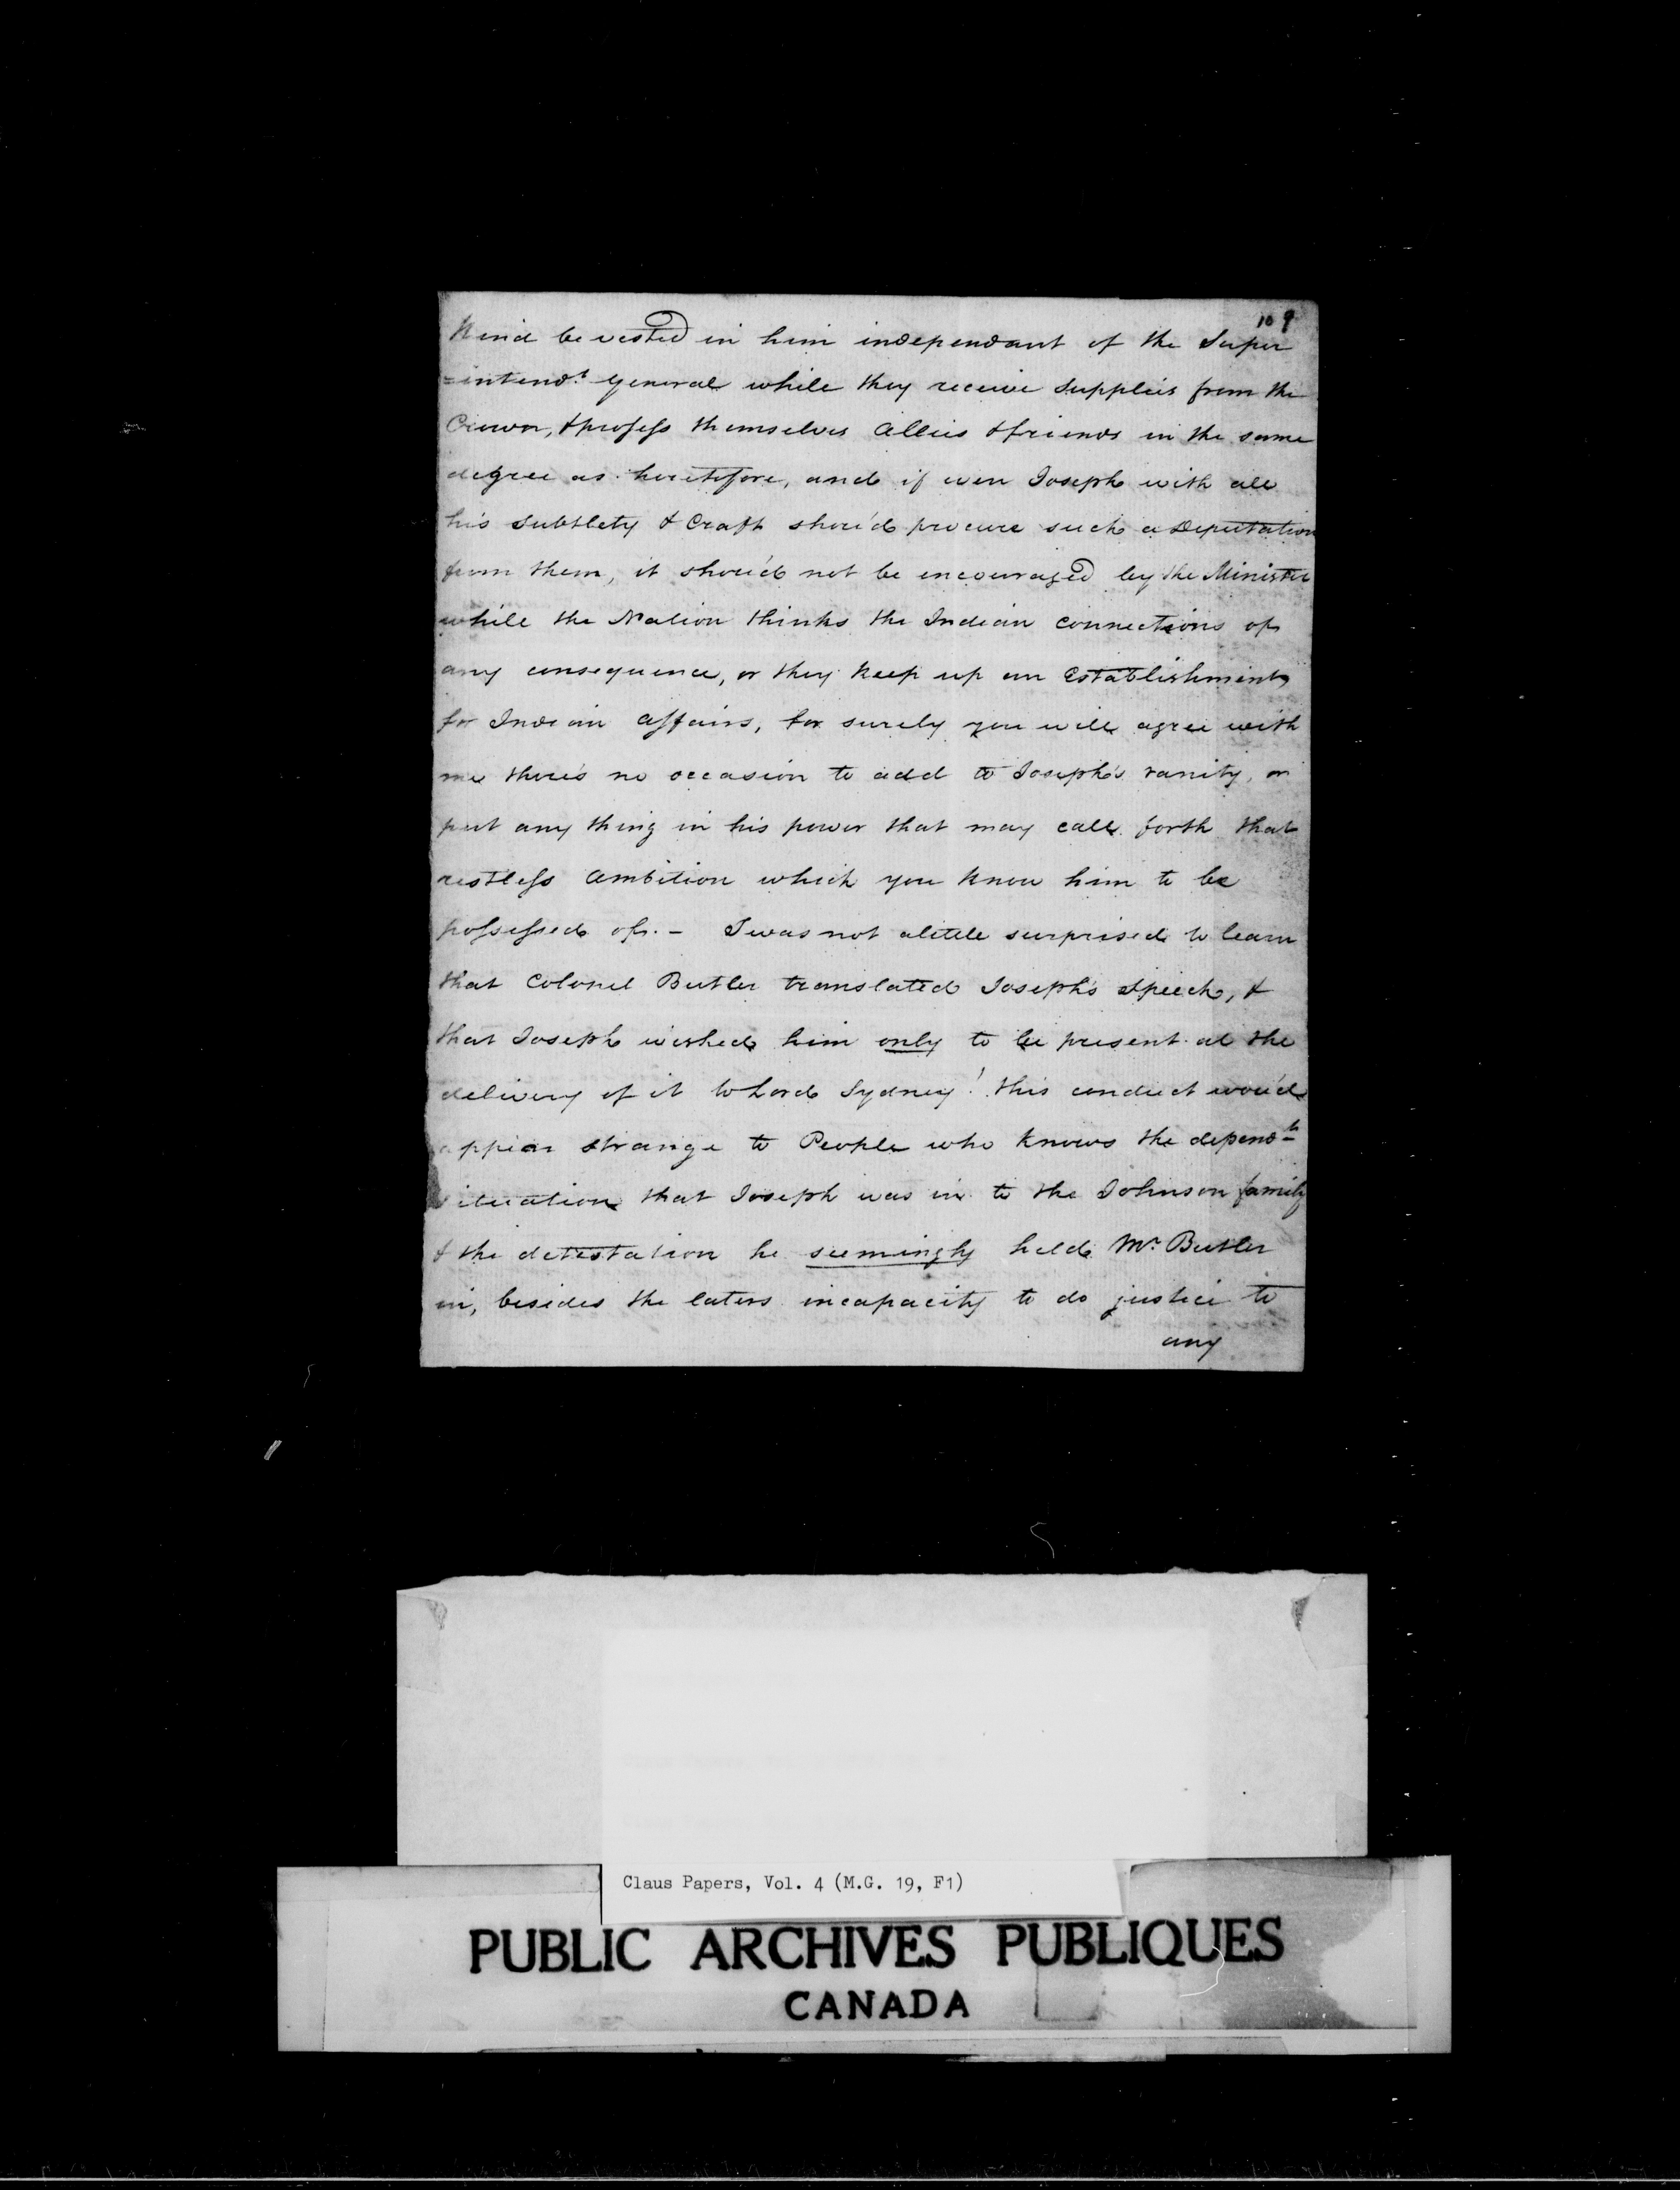 109
Kind be vested in him independant of the Super
=intendt. General while they receive Supplies from the
Crown, & profess themselves Allies & friends in the same
degree as heretofore, and if even Joseph with all
his Subtlety & Craft shou'd procure such a Deputation
from them, it shou'd not be encouraged by the Minister
while the Nation thinks the Indian Connections of
any consequence, or they keep up an Establishment
for Indian Affairs, for surely you will agree with
me there's no occasion to add to Joseph's vanity, or
put any thing in his power that may call forth that
restless Ambition which you know him to be
possessed of. - I was not a little surprised to learn
that Colonel Butler translated Joseph's Speech, &
that Joseph wished him only to be present at the
delivery of it to Lord Sydney! this conduct wou'd
appear strange to People who knows the dependt.
situation that Joseph was in to the Johnson family
& the detestation he seemingly held Mr. Butler
in, besides the laters incapacity to do justice to
any
Claus Papers, Vol. 4 (M.G. 19, F1)
PUBLIC ARCHIVES PUBLIQUES
CANADA